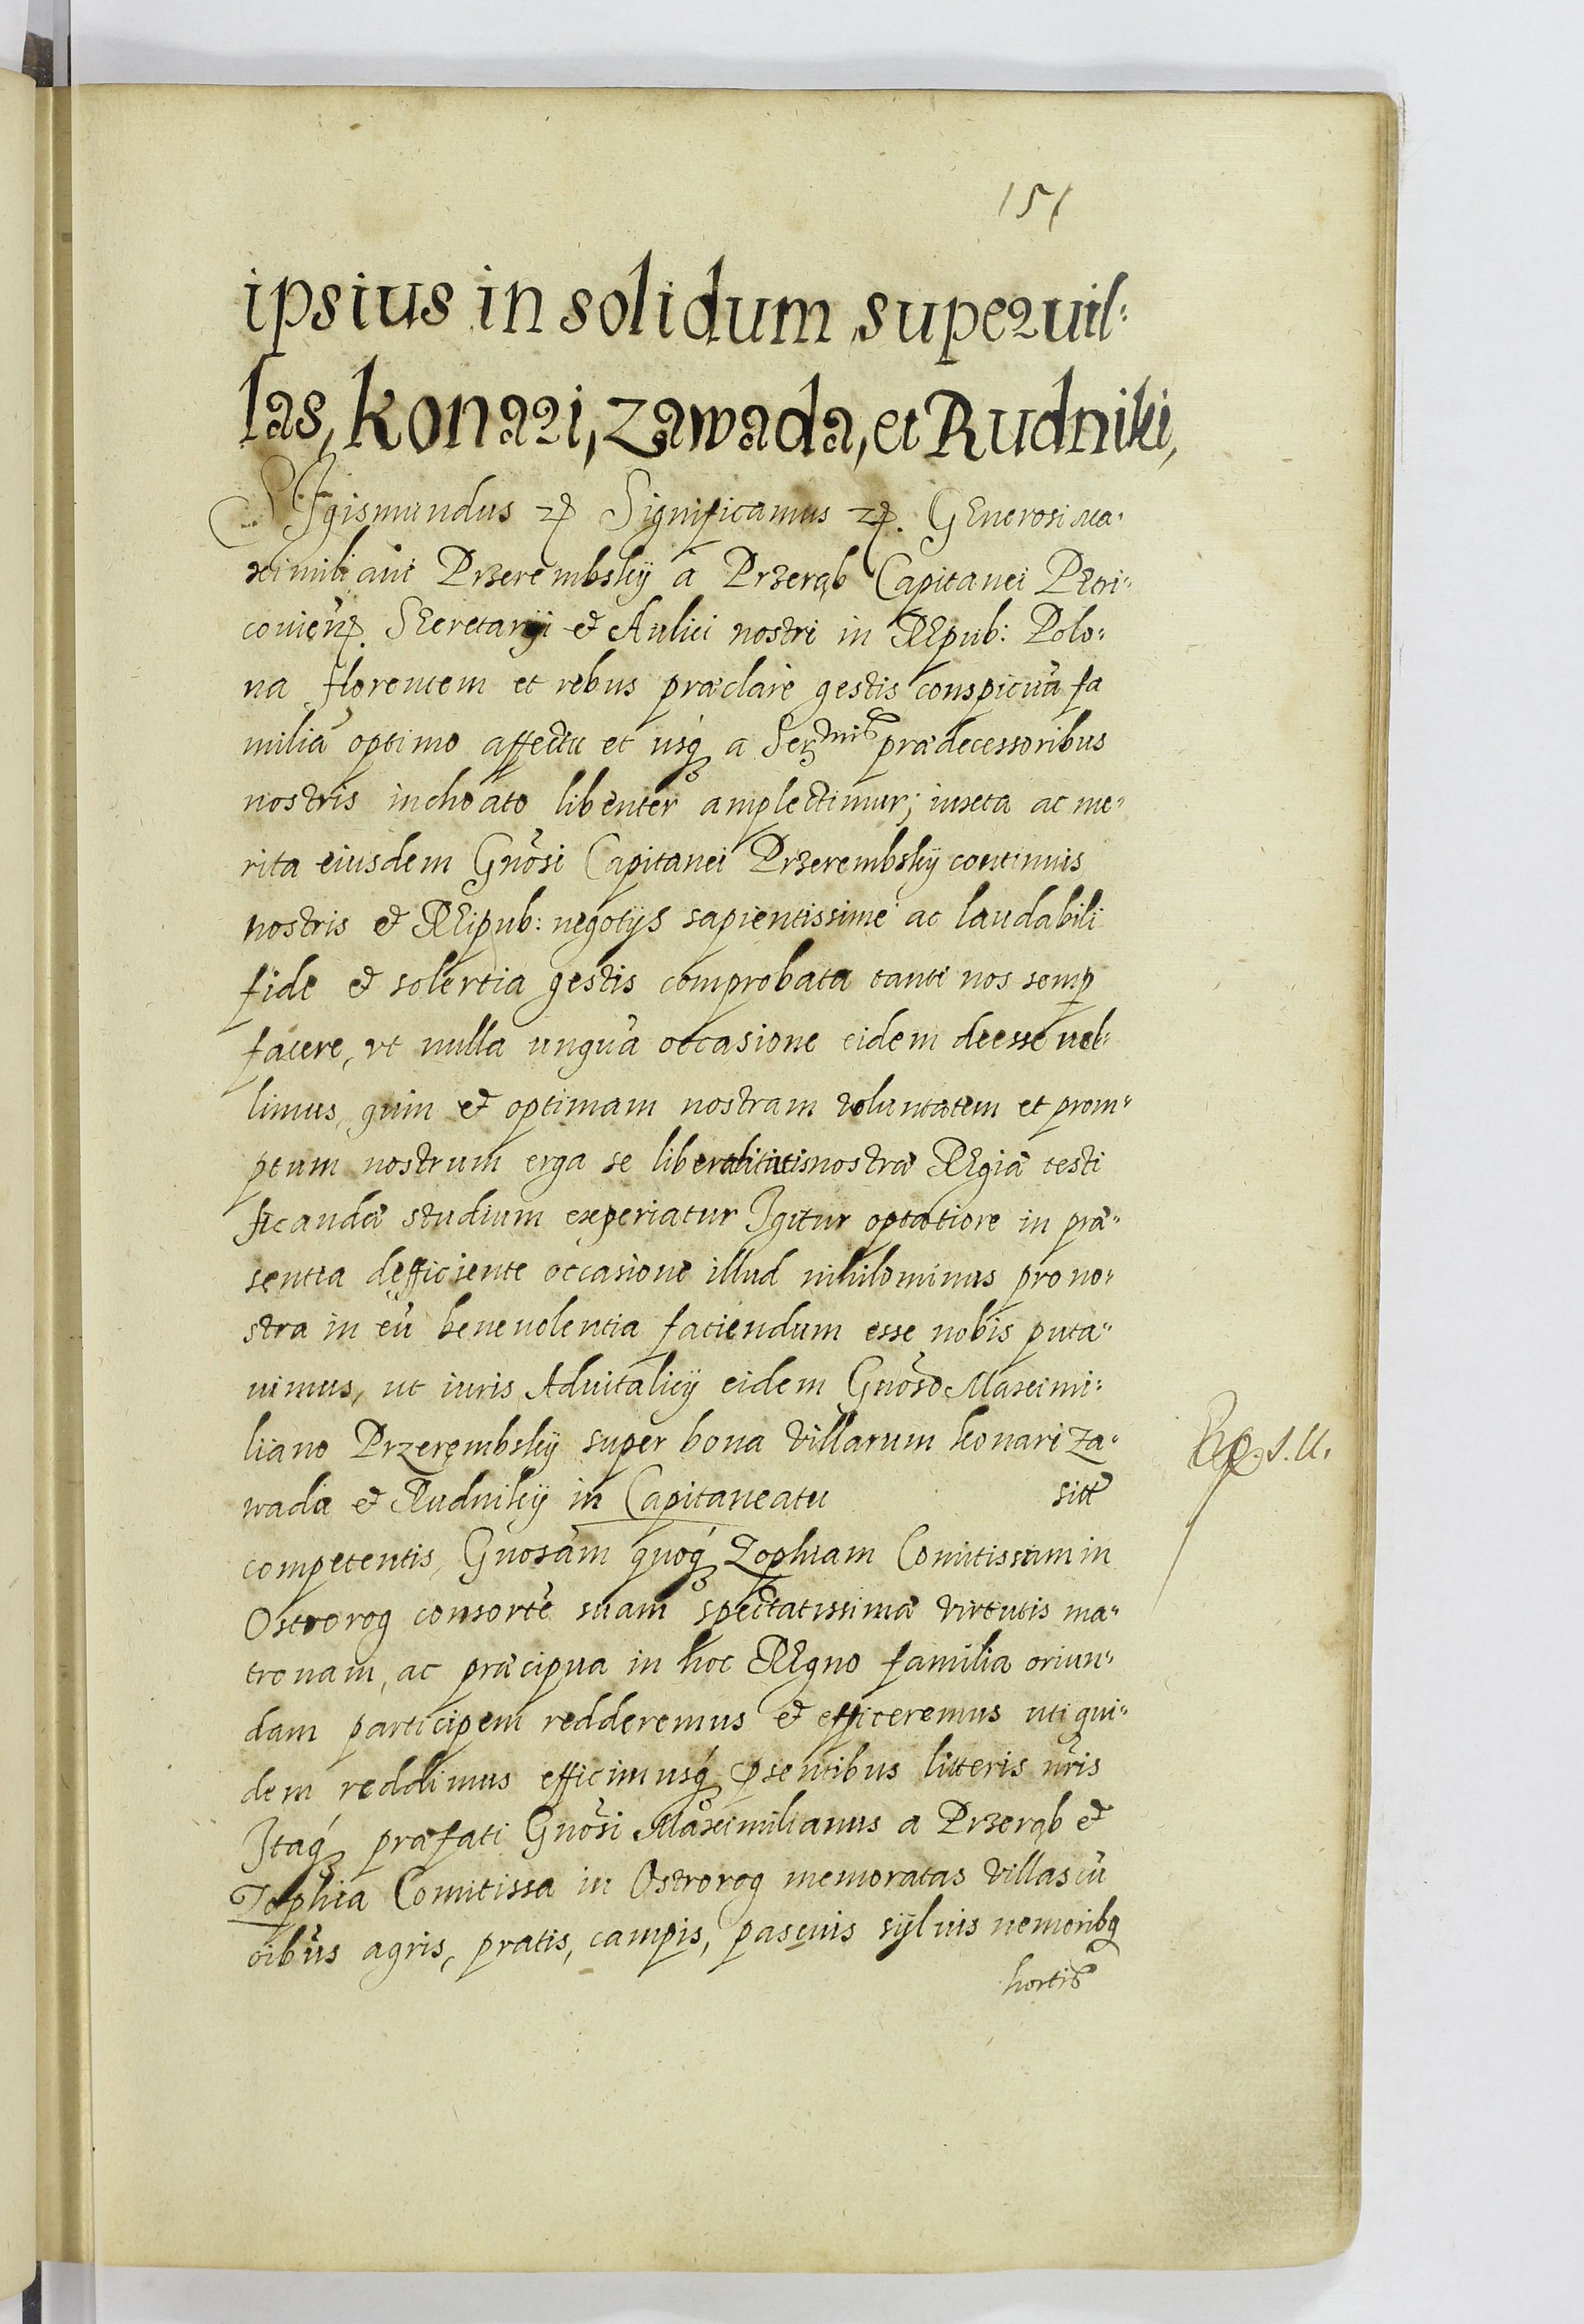 151
ipsius in solidum super vil:
las, Konari, Zawada, et Rudniki,
SIgismundus etc. Significamus etc. GEnerosi Ma:
ximiliani Przerembskÿ à Przerąb Capitanei PEtri:
covieñ. SEcretarÿ et Aulici nostri in REpub: Polo:
na florentem et rebus præclarè gestis conspicuã fa
miliã optimo affectu et usq́ a Serᵐⁱˢ prædecessoribus
nostris inchoato libenter amplectimur; iuxta ac me:
rita eiusdem Gñosi Capitanei Przerembskÿ continuis
nostris et REipub: negotÿs sapientissimè ac laudabili
fide et solertia gestis comprobata tanti nos semp
facere, ut nulla unquã occasione eidem deesse vel:
limus, quin et optimam nostram voluntatem et prom:
ptum nostrum erga se liberalitatis nostræ REgiæ testi
ficandæ studium experiatur Igitur optatiore in præ:
sentia defficiente occasione illud nihilominus pro no:
stra in eũ benevolentia faciendum esse nobis puta:
uimus, ut iuris Aduitalicÿ eidem Gñoso Maximi:
liano Przerembskÿ super bona villarum Konari Za:
wada et Rudnikÿ in Capitaneatu sitt
Rp. S. M.
competentis, Gnosam quoq́ Zophiam Comitissam in
Ostrorog consortẽ suam spectatissimæ virtutis ma:
tronam, ac præcipua in hoc REgno familia oriun:
dam participem redderemus et efficeremus uti qui:
dem reddimus efficimusq́ pñsentibus litteris ñris
Itaq́ præfati Gñosi Maximilianus a Przerąb et
Zophia Comitissa in Ostrorog memoratas villas cũ
oĩbus agris, pratis, campis, pascuis sÿluis nemoribq
hortis